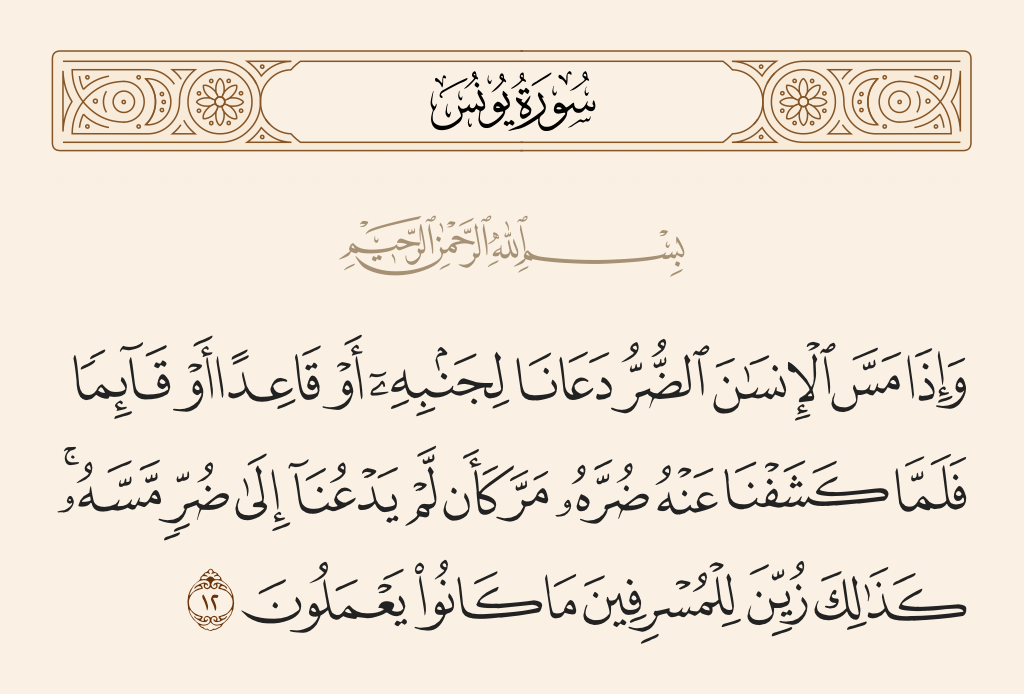 سُورَةُ يُونُسَ
بِسْمِ ٱللَّهِ ٱلرَّحْمَٰنِ ٱلرَّحِيمِ
وَإِذَا مَسَّ ٱلْإِنسَٰنَ ٱلضُّرُّ دَعَانَا لِجَنۢبِهِۦٓ أَوْ قَاعِدًا أَوْ قَآئِمًا
فَلَمَّا كَشَفْنَا عَنْهُ ضُرَّهُۥ مَرَّ كَأَن لَّمْ يَدْعُنَآ إِلَىٰ ضُرٍّ مَّسَّهُۥ ۚ
كَذَٰلِكَ زُيِّنَ لِلْمُسْرِفِينَ مَا كَانُوا۟ يَعْمَلُونَ ١٢